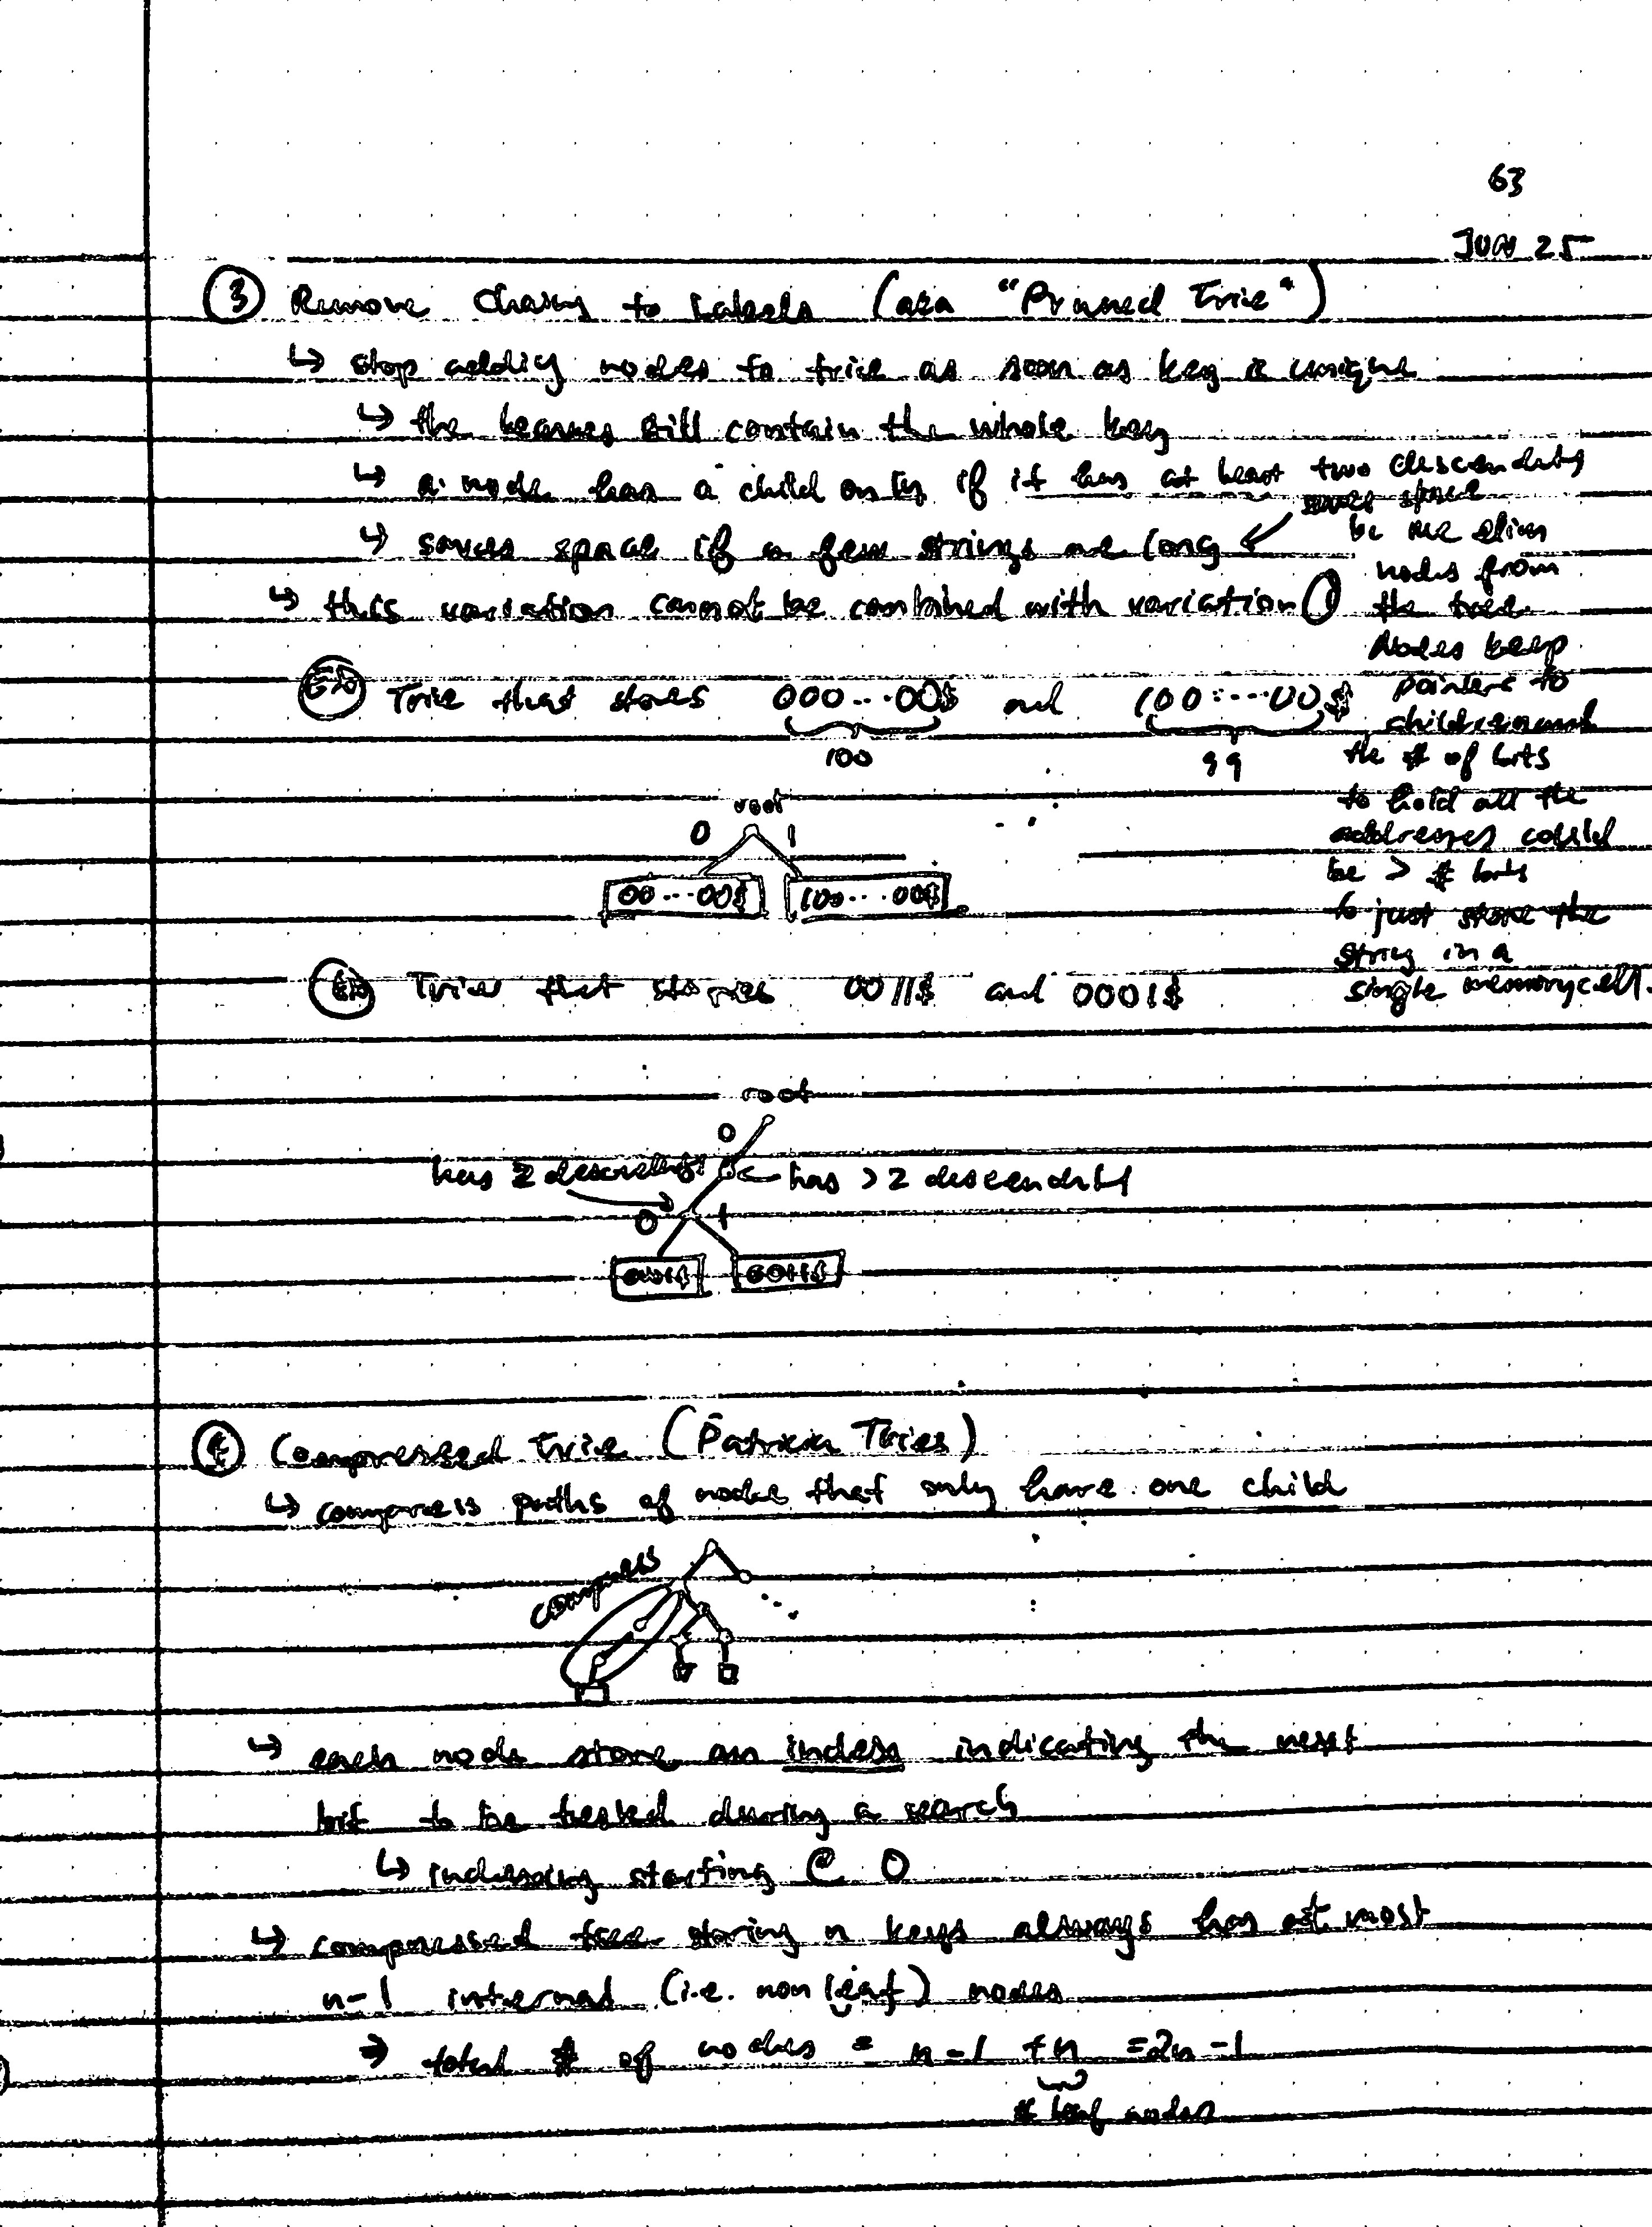 63
JUN 25
③ Remove Chains to Labels (aka "Pruned Trie")
↳ stop adding nodes to trie as soon as key is unique
↳ the leaves still contain the whole key
↳ a node has a child only if it has at least two descendants
↳ saves space if a few strings are long ↙ saves space
bc we elim
nodes from
the tree.
Nodes keep
pointers to
children and
the # of bits
to hold all the
addresses could
be > # bits
to just store the
string in a
single memory cell.
↳ this variation cannot be combined with variation ①
Ex Trie that stores 000...00$ and 100...00$
100 99
root
0 1
00...00$ 100...00$
Ex Tries that stores 0011$ and 0001$
root
0
has 2 descendants has ≥ 2 descendants
0 1
0001$ 0011$
④ Compressed Trie (Patricia Tries)
↳ compress paths of nodes that only have one child
compress
↳ each node store an index indicating the next
bit to be tested during a search
↳ indexing starting @ 0
↳ compressed tree storing n keys always has at most
n-1 internal (i.e. non leaf) nodes
⇒ total # of nodes = n-1 + n = 2n-1
# leaf nodes